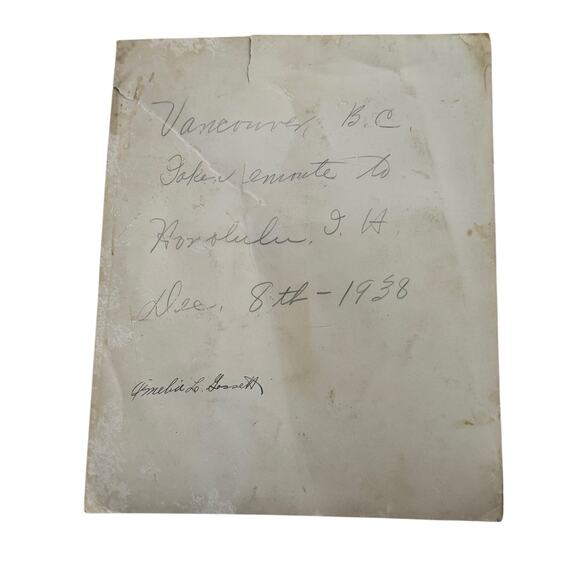 Vancouver, B.C.
Taken enroute to
Honolulu, T. H.
Dec. 8th – 1938
Amelia L. Gossett